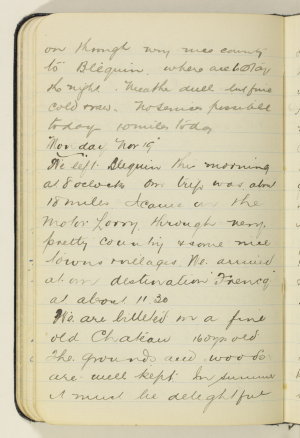 on through very nice country
to Blequin. where are to stay
the night. Weather dull but fine
cold raw. No services possible
today 10 miles today
Monday Nov 19th
We left Blequin this morning
at 8 oclock our trip was about
18 miles. I came in the
Motor Lorry through very
pretty country & some nice
towns & villages. We arrived
at our destination Frencq
at about 11 30
We are billeted in a fine
old Chateau 160 yrs old
The grounds and woods
are well kept In summer
it must be delightful